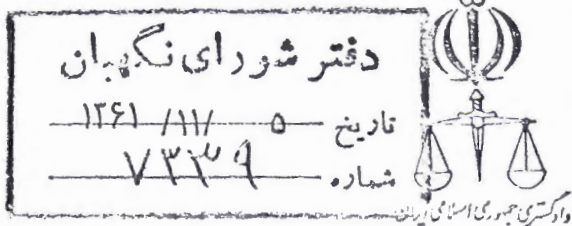 دفتر شورای نگهبان
تاریخ ۱۳۶۱/۱۱/۵
شماره ۷۳۳۹
دادگستری جمهوری اسلامی ایران